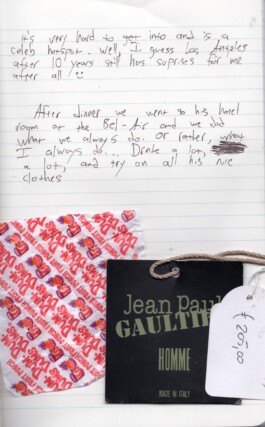 it's very hard to get into and is a
celeb hotspot. Well, I guess Los Angeles
after 10 years still has suprises for me
after all!
After dinner we went to his hotel
room at the Bel-Air and we did
what we always do. Or rather, what
I always do... Drink a lot,
a lot, and try on all his nice
clothes
Jean Paul
GAULTIER
HOMME
MADE IN ITALY
£205,00